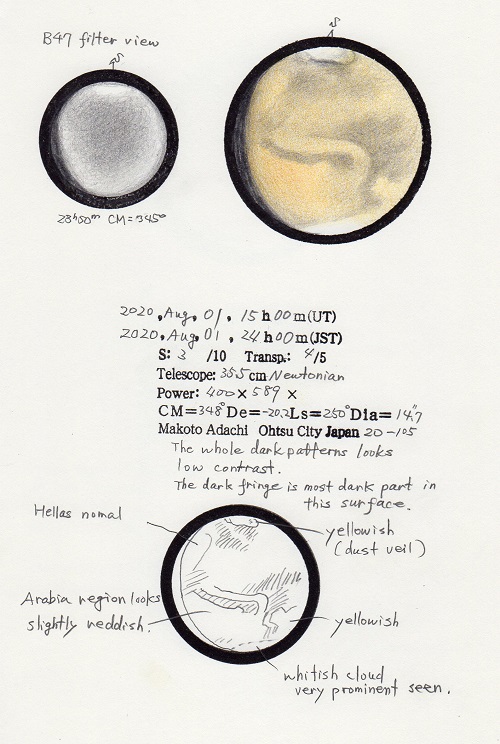 B47 filter view
S
S
23h50m CM=345°
2020, Aug, 01, 15h00m(UT)
2020, Aug, 01, 24h00m(JST)
S: 3 /10 Transp.: 4/5
Telescope: 355cm Newtonian
Power: 400× 589 ×
CM=348°De=-20.2Ls=250°Dia=14."7
Makoto Adachi Ohtsu City Japan 20-105
The whole dark patterns looks
low contrast.
The dark fringe is most dark part in
this surface.
Hellas nomal
yellowish
(dust veil)
Arabia region looks
slightly reddish.
yellowish
whitish cloud
very prominent seen.